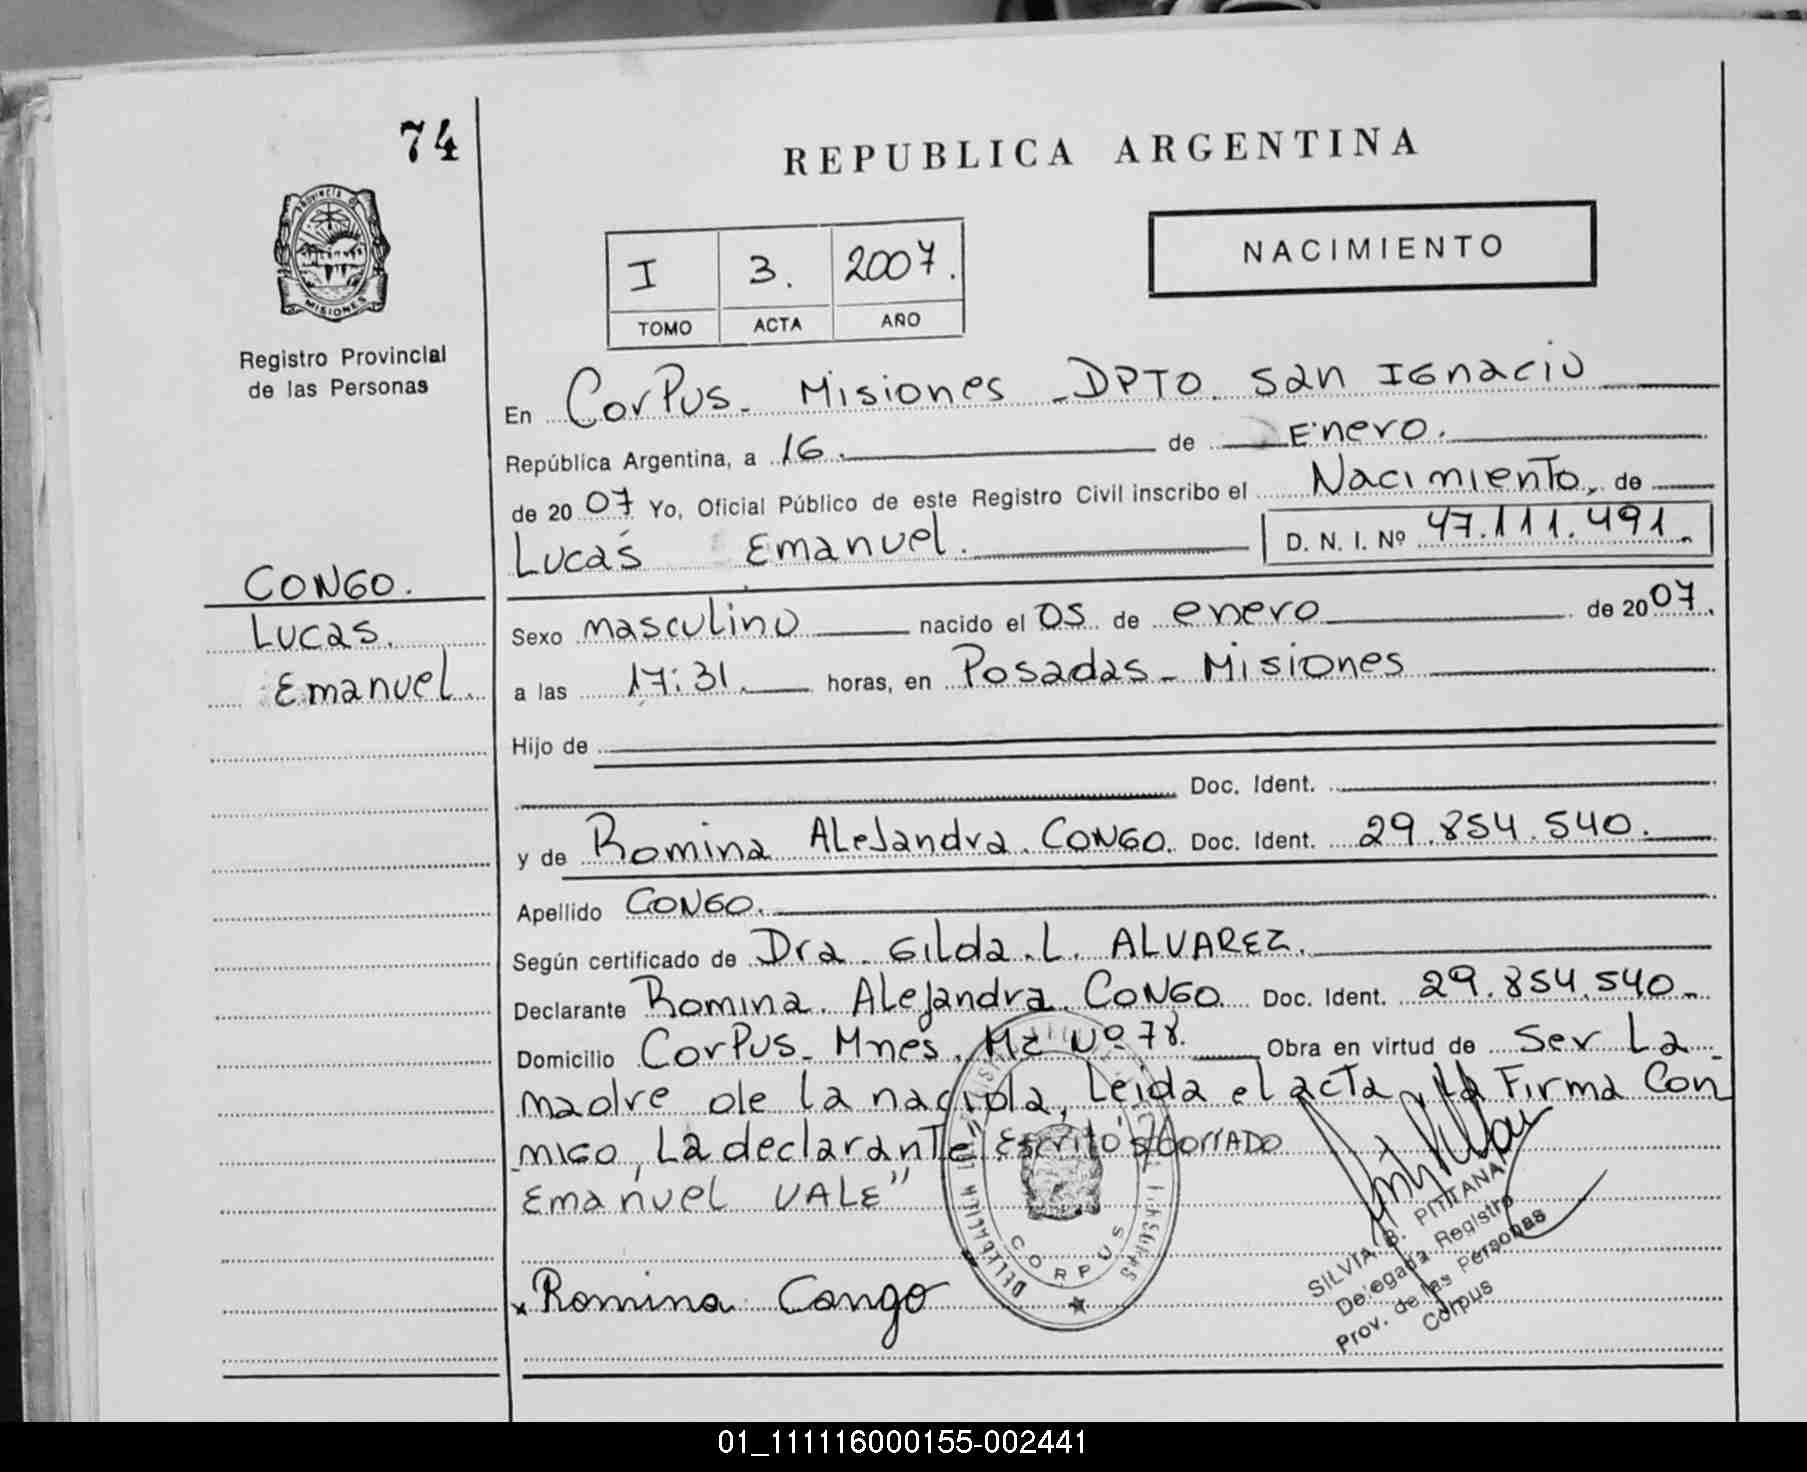 74
REPUBLICA ARGENTINA
PROVINCIA DE
MISIONES
Registro Provincial
de las Personas
I 3. 2007.
TOMO ACTA AÑO
NACIMIENTO
En CorPus - Misiones - DPTO. San IGnacio
República Argentina, a 16. de Enero.
de 2007 Yo, Oficial Público de este Registro Civil inscribo el Nacimiento, de
Lucas Emanuel. D. N. I. Nº 47.111.491.
CONGO.
Lucas.
Emanuel.
Sexo masculino nacido el 05 de enero de 2007.
a las 17:31. horas, en Posadas - Misiones
Hijo de
Doc. Ident.
y de Romina ALeJandra. CONGO. Doc. Ident. 29.854.540.
Apellido CONGO.
Según certificado de Dra. Gilda. L. ALVAREZ.
Declarante Romina. ALejandra. CONGO. Doc. Ident. 29.854.540-
Domicilio CorPus - Mnes. Mz Nº 78. Obra en virtud de Ser La
madre de la nacida, Leida el acta, la Firma Con
migo, La declarante "Escrito s/borrado
Emanuel VALE"
CORPUS
x Romina Congo
SILVIA B. PITTANA
Delegada Registro
Prov. de las Personas
Corpus
01_111116000155-002441